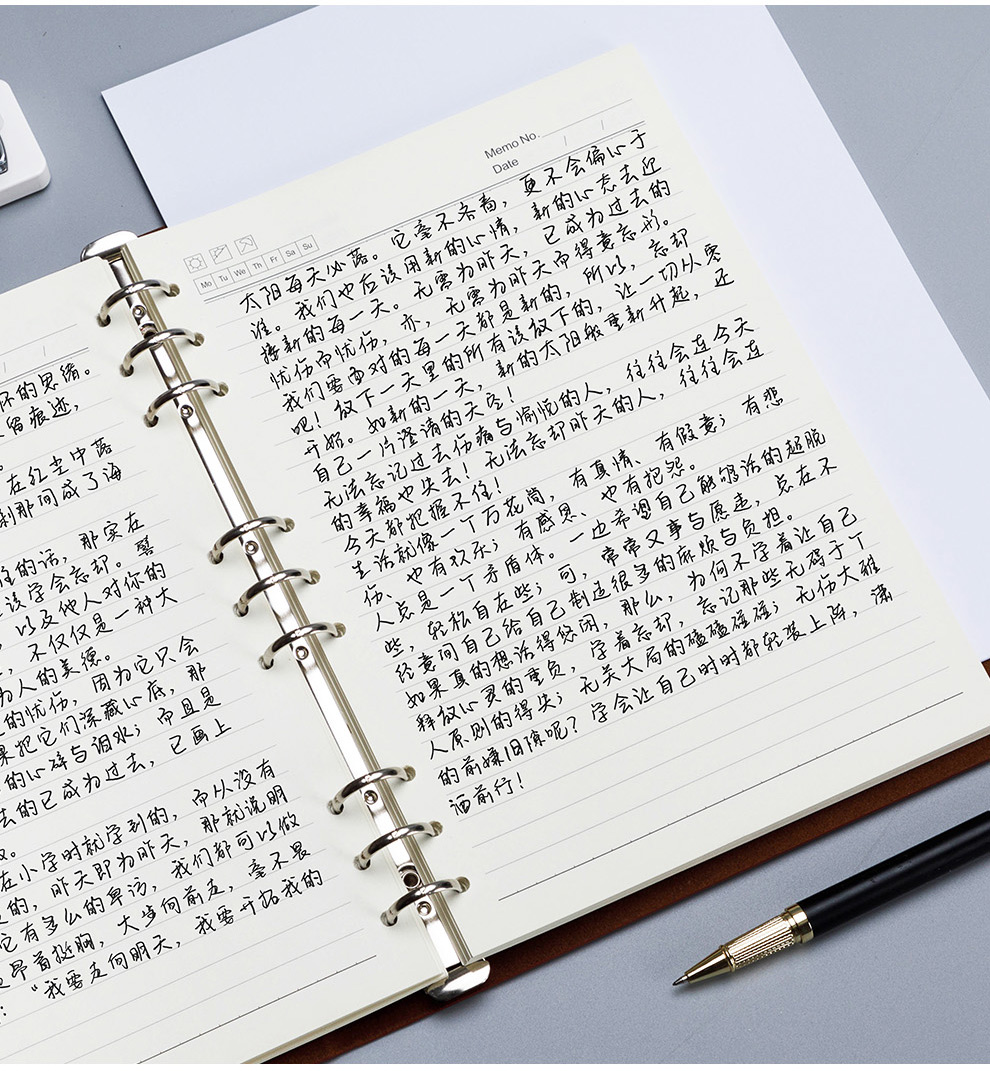 怀的思绪。
留痕迹,
在红尘中落
刹那间成了海
住的话,那实在
该学会忘却。譬
以及他人对你的
,不仅仅是一种大
为人的美德。
的忧伤,因为它只会
果把它们深藏心底,那
的心碎与泪水;而且是
去的已成为过去,已画上
在小学时就学到的,而从没有
的,昨天即为昨天,那就说明
它有多么的卑访,我们都可以做
昂首挺胸,大步向前走,毫不畏
:“我要走向明天,我要开拓我的
Memo No.
Date / /
Mo Tu We Th Fr Sa Su
太阳每天必落。它毫不吝啬,更不会偏心于
谁。我们也后该用新的心情,新的心态去迎
接新的每一天。无需为昨天,已成为过去的
忧伤而忧伤,亦,无需为昨天而得意忘形。
我们需面对的每一天都是新的,所以,忘却
吧!放下一天里的所有该放下的,让一切从零
开始。如新的一天,新的太阳般重新升起,还
自己一片澄请的天空!
无法忘记过去伤痛与愉悦的人,往往会连今天
的幸福也失去!无法忘却昨天的人,往往会连
今天都把握不住!
生活就像一个万花筒,有真情、有假意;有悲
伤、也有欢乐;有感恩、也有抱怨。
人总是一个矛盾体。一边希望自己能够活的超脱
些,轻松自在些;可,常常又事与愿违,总在不
经意间自己给自己制造很多的麻烦与负担。
如果真的想活得悠闲,那么,为何不学着让自己
释放心灵的重负,学着忘却,忘记那些无碍于个
人原则的得失;无关大局的磕磕碰碰;无伤大雅
的前嫌旧隙呢?学会让自己时时都轻装上阵,潇
洒前行!